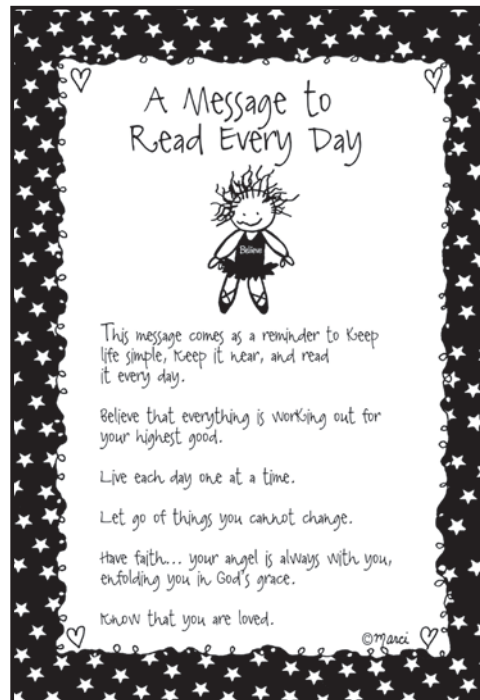 A Message to
Read Every Day
Believe
This message comes as a reminder to keep
life simple, keep it near, and read
it every day.
Believe that everything is working out for
your highest good.
Live each day one at a time.
Let go of things you cannot change.
Have faith... your angel is always with you,
enfolding you in God's grace.
Know that you are loved.
©Marci